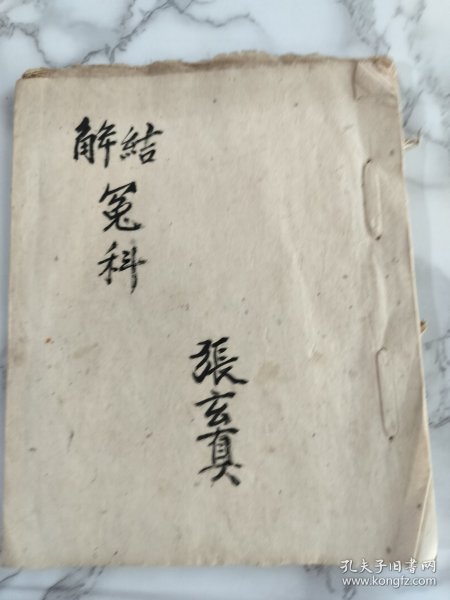 解結冤科
張玄真
孔夫子旧书网
www.kongfz.com